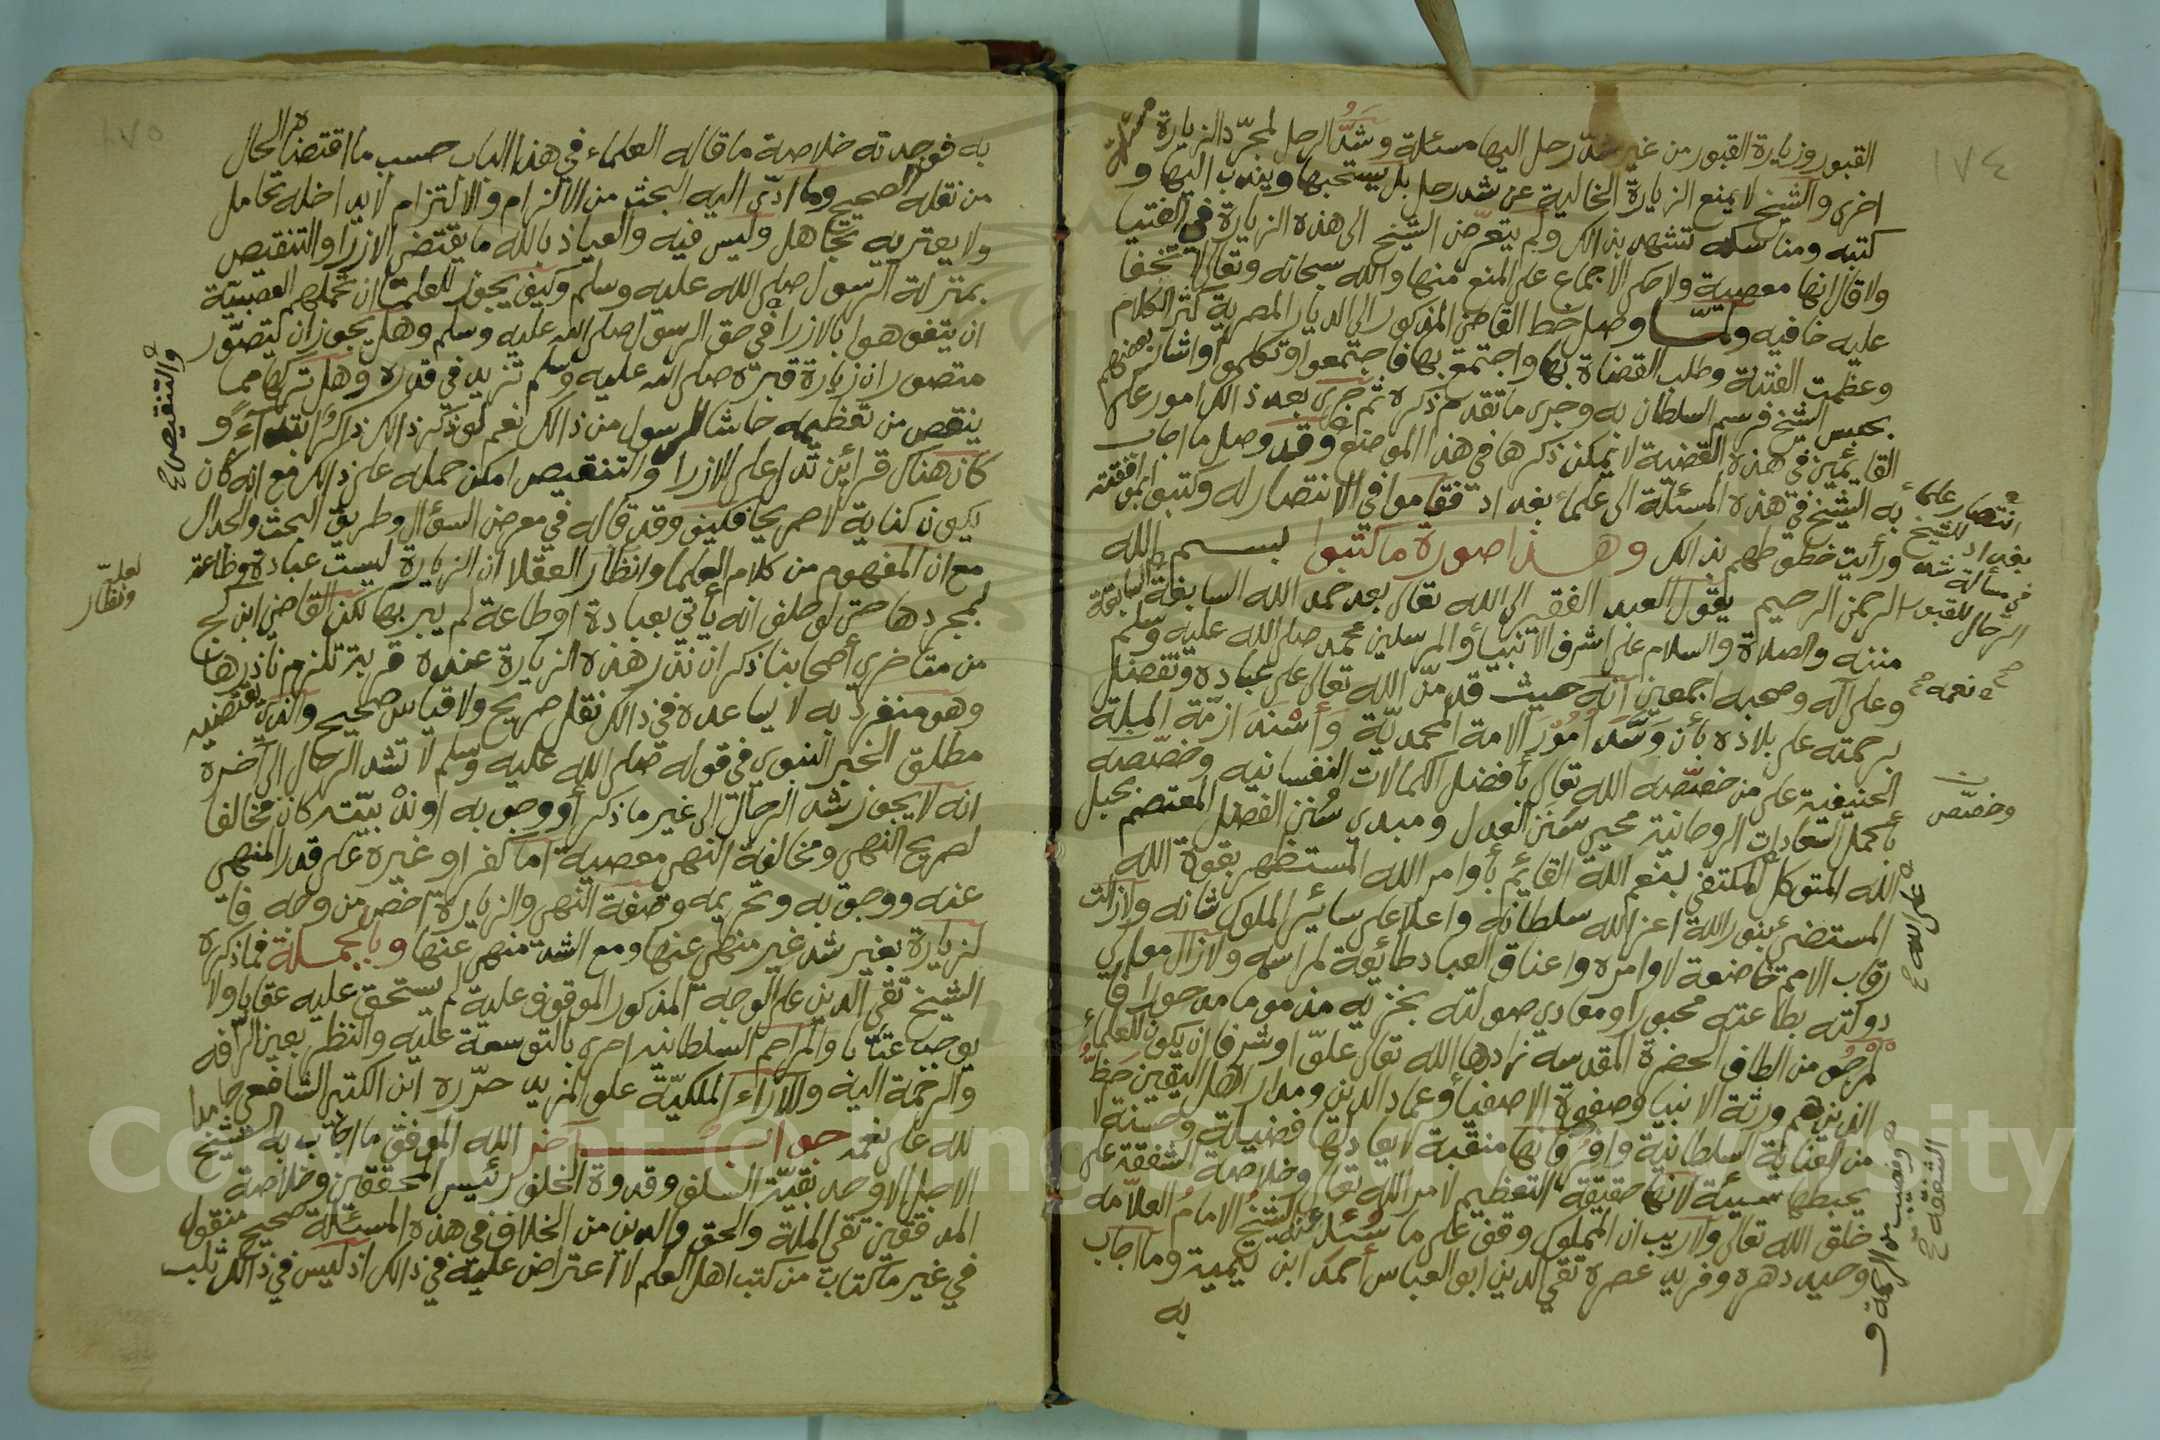 ١٧٤
القبور وزيارة القبور من غير شدّ رحل اليها مسئلة وشدُّ الرحل لمجرّد الزيارة مسئلة
اخرى والشيخ لا يمنع الزيارة الخالية عن شد رحل بل يستحبها ويندب اليها و
كتبه ومناسكه تشهد بذالك ولم يتعرّض الشيخ الى هذه الزيارة في الفتيا
ولا قال انها معصية ولا حكى الاجماع على المنع منها والله سبحانه وتعالى لا تخفى
عليه خافيه ولمّا وصل خط القاضي المذكور الى الديار المصرية كثر الكلام
وعظمت الفتنة وطلب القضاة بها واجتمعوا بها فاجتمعوا وتكلموا واشار بعضهم
بحبس الشيخ فرسم السلطان به وجرى ما تقدم ذكره ثم جرى بعد ذالك امور على
القايمين في هذه القضية لا يمكن ذكرها في هذا الموضع وقد وصل ما اجاب
به الشيخ في هذه المسئلة الى علماء بغداد فقاموا في الانتصار له وكتبوا بموافقته
ورأيت خطوطهم بذالك وهذا صورة ما كتبوا بسم الله
الرحمن الرحيم يقول العبد الفقير الى الله تعالى بعد حمد الله السابغة السابقة
مننه والصلاة والسلام على اشرف الانبيا والمرسلين محمد صلى الله عليه وسلم
وعلى آله وصحبه اجمعين انه حيث قد منّ الله تعالى على عباده وتفضل
برحمته على بلاده بأن وسّد امور الامة المحمديّة وأسند ازمّة الملة
الحنيفية على من خصّصه الله تعالى بأفضل الكمالات النفسانيه وخصّصه
بأكمل السعادات الروحانية محيي سنن العدل ومبدي سنن الفضل المعتصم بحبل
الله المتوكل المكتفي بنعم الله القائم بأوامر الله المستظهر بقوة الله
المستضي بنور الله اعز الله سلطانه واعلا على سائر الملوك شانه ولا زالت
رقاب الامم خاضعة لاوامره واعناق العباد طائعة لمراسه ولا زال موالي
دولته بطاعته محبورا ومعادي صولته بخزيه مذموما مدحورا فا
لمرجو من الطاف الحضرة المقدسه زادها الله تعالى علوّا وشرفا ان يكون للعلماء
الذين هم ورثة الانبيا وصفوة الاصفيا وعماد الدين ومدار اهل اليقين حظُّ
من العناية السلطانية وافر فانها منقبة لا يعادلها فضيلة وحسنة لا
يحبطها سيئة لانها حقيقة التعظيم لامر الله تعالى وخلاصة الشفقة على
خلق الله تعالى ولا ريب ان المملوك وقف على ما سُئل عنه الشيخُ الامامُ العلاّمه
وحيد دهره وفريد عصره تقي الدين ابو العباس أحمد ابن تيمية وما اجاب
به
انتصار علماء
بغداد للشيخ
في مسألة شد
الرحال للقبور
نعمه
وخصّص
الشفقة
١٧٥
به فوجدته خلاصة ما قاله العلماء في هذا الباب حسب ما اقتضاه الحال
من نقله الصحيح وما ادّى اليه البحث من الالزام والالتزام لا يداخله تحامل
ولا يعتريه تجاهل وليس فيه والعياذ بالله ما يقتضي الازرا والتنقيص
بمنزلة الرسول صلى الله عليه وسلم وكيف يجوز للعلما ان تحملهم العصبيّة
ان يتفوهوا بالازرا في حق الرسول صلى الله عليه وسلم وهل يجوز ان يتصوّر
متصور ان زيارة قبره صلى الله عليه وسلم تزيد في قدره وهل تركها مما
ينقص من تعظيمه حاشا للرسول من ذالك نعم لو ذكر ذالك ذاكر ابتداءً و
كان هناك قرائن تدل على الازرا والتنقيص امكن حمله على ذالك مع انه كان
يكون كناية لا صريحا فكيف وقد قاله في معرض السؤال وطريق البحث والجدال
مع ان المفهوم من كلام العلما وانظار العقلا ان الزيارة ليست عبادة وطاعة
لمجردها حتى لو حلف انه يأتي بعبادة او طاعة لم يبر بها لكن القاضي ابن كج
من متاخري أصحابنا ذكر ان نذر هذه الزيارة عنده قربة تلزم ناذرها
وهو منفرد به لا يساعده في ذالك نقل صريح ولا قياس صحيح والذي يقتضيه
مطلق الخبر النبوي في قوله صلى الله عليه وسلم لا تشد الرحال الى آخره
انه لا يجوز شد الرحال الى غير ما ذكر أو وجوبه او ندبيّته كان مخالفا
لصريح النهي ومخالفة النهي معصية اما كفر او غيره على قدر المنهي
عنه ووجوبه وتحريمه وصفة النهي والزيارة اخص من وجه فا
لزيارة بغير شد غير منهي عنها ومع الشد منهي عنها وبالجملة فما ذكره
الشيخ تقي الدين على الوجه المذكور الموقوف عليه لم يستحق عليه عقابا ولا
يوجب عتابا والمراحم السلطانيه احرى بالتوسعة عليه والنظر بعين الرأفه
والرحمة اليه وللآراء الملكيّة علو المزيد حرّره ابن الكتبي الشافعي حامدا
لله على نعمه جواب آخر الله الموفق ما اجاب به الشيخ
الاجل الاوحد بقيّة السلف وقدوة الخلف رئيس المحققين وخلاصة
المدققين تقي الملة والحق والدين من الخلاف في هذه المسئلة صحيح منقول
في غير ما كتاب من كتب اهل العلم لا اعتراض عليه في ذالك اذ ليس في ذالك ثلب
والتنقيص
لعله
ونظار